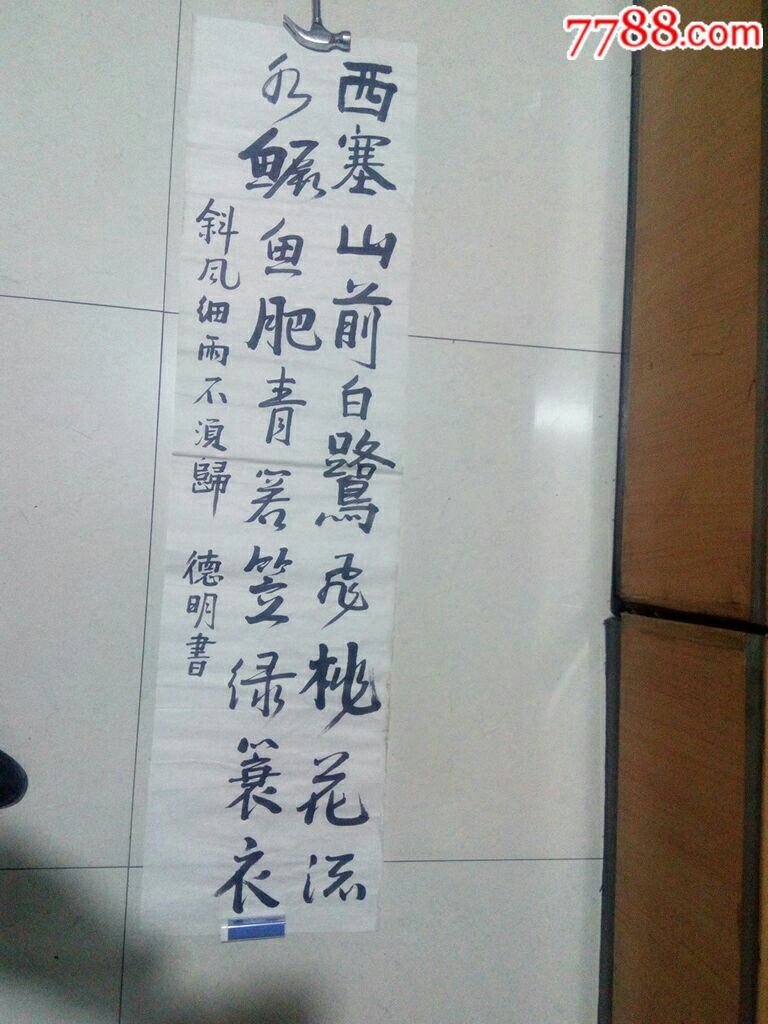 7788.com
西塞山前白鷺飛桃花流
水鱖魚肥青箬笠绿蓑衣
斜风细雨不須歸 德明書